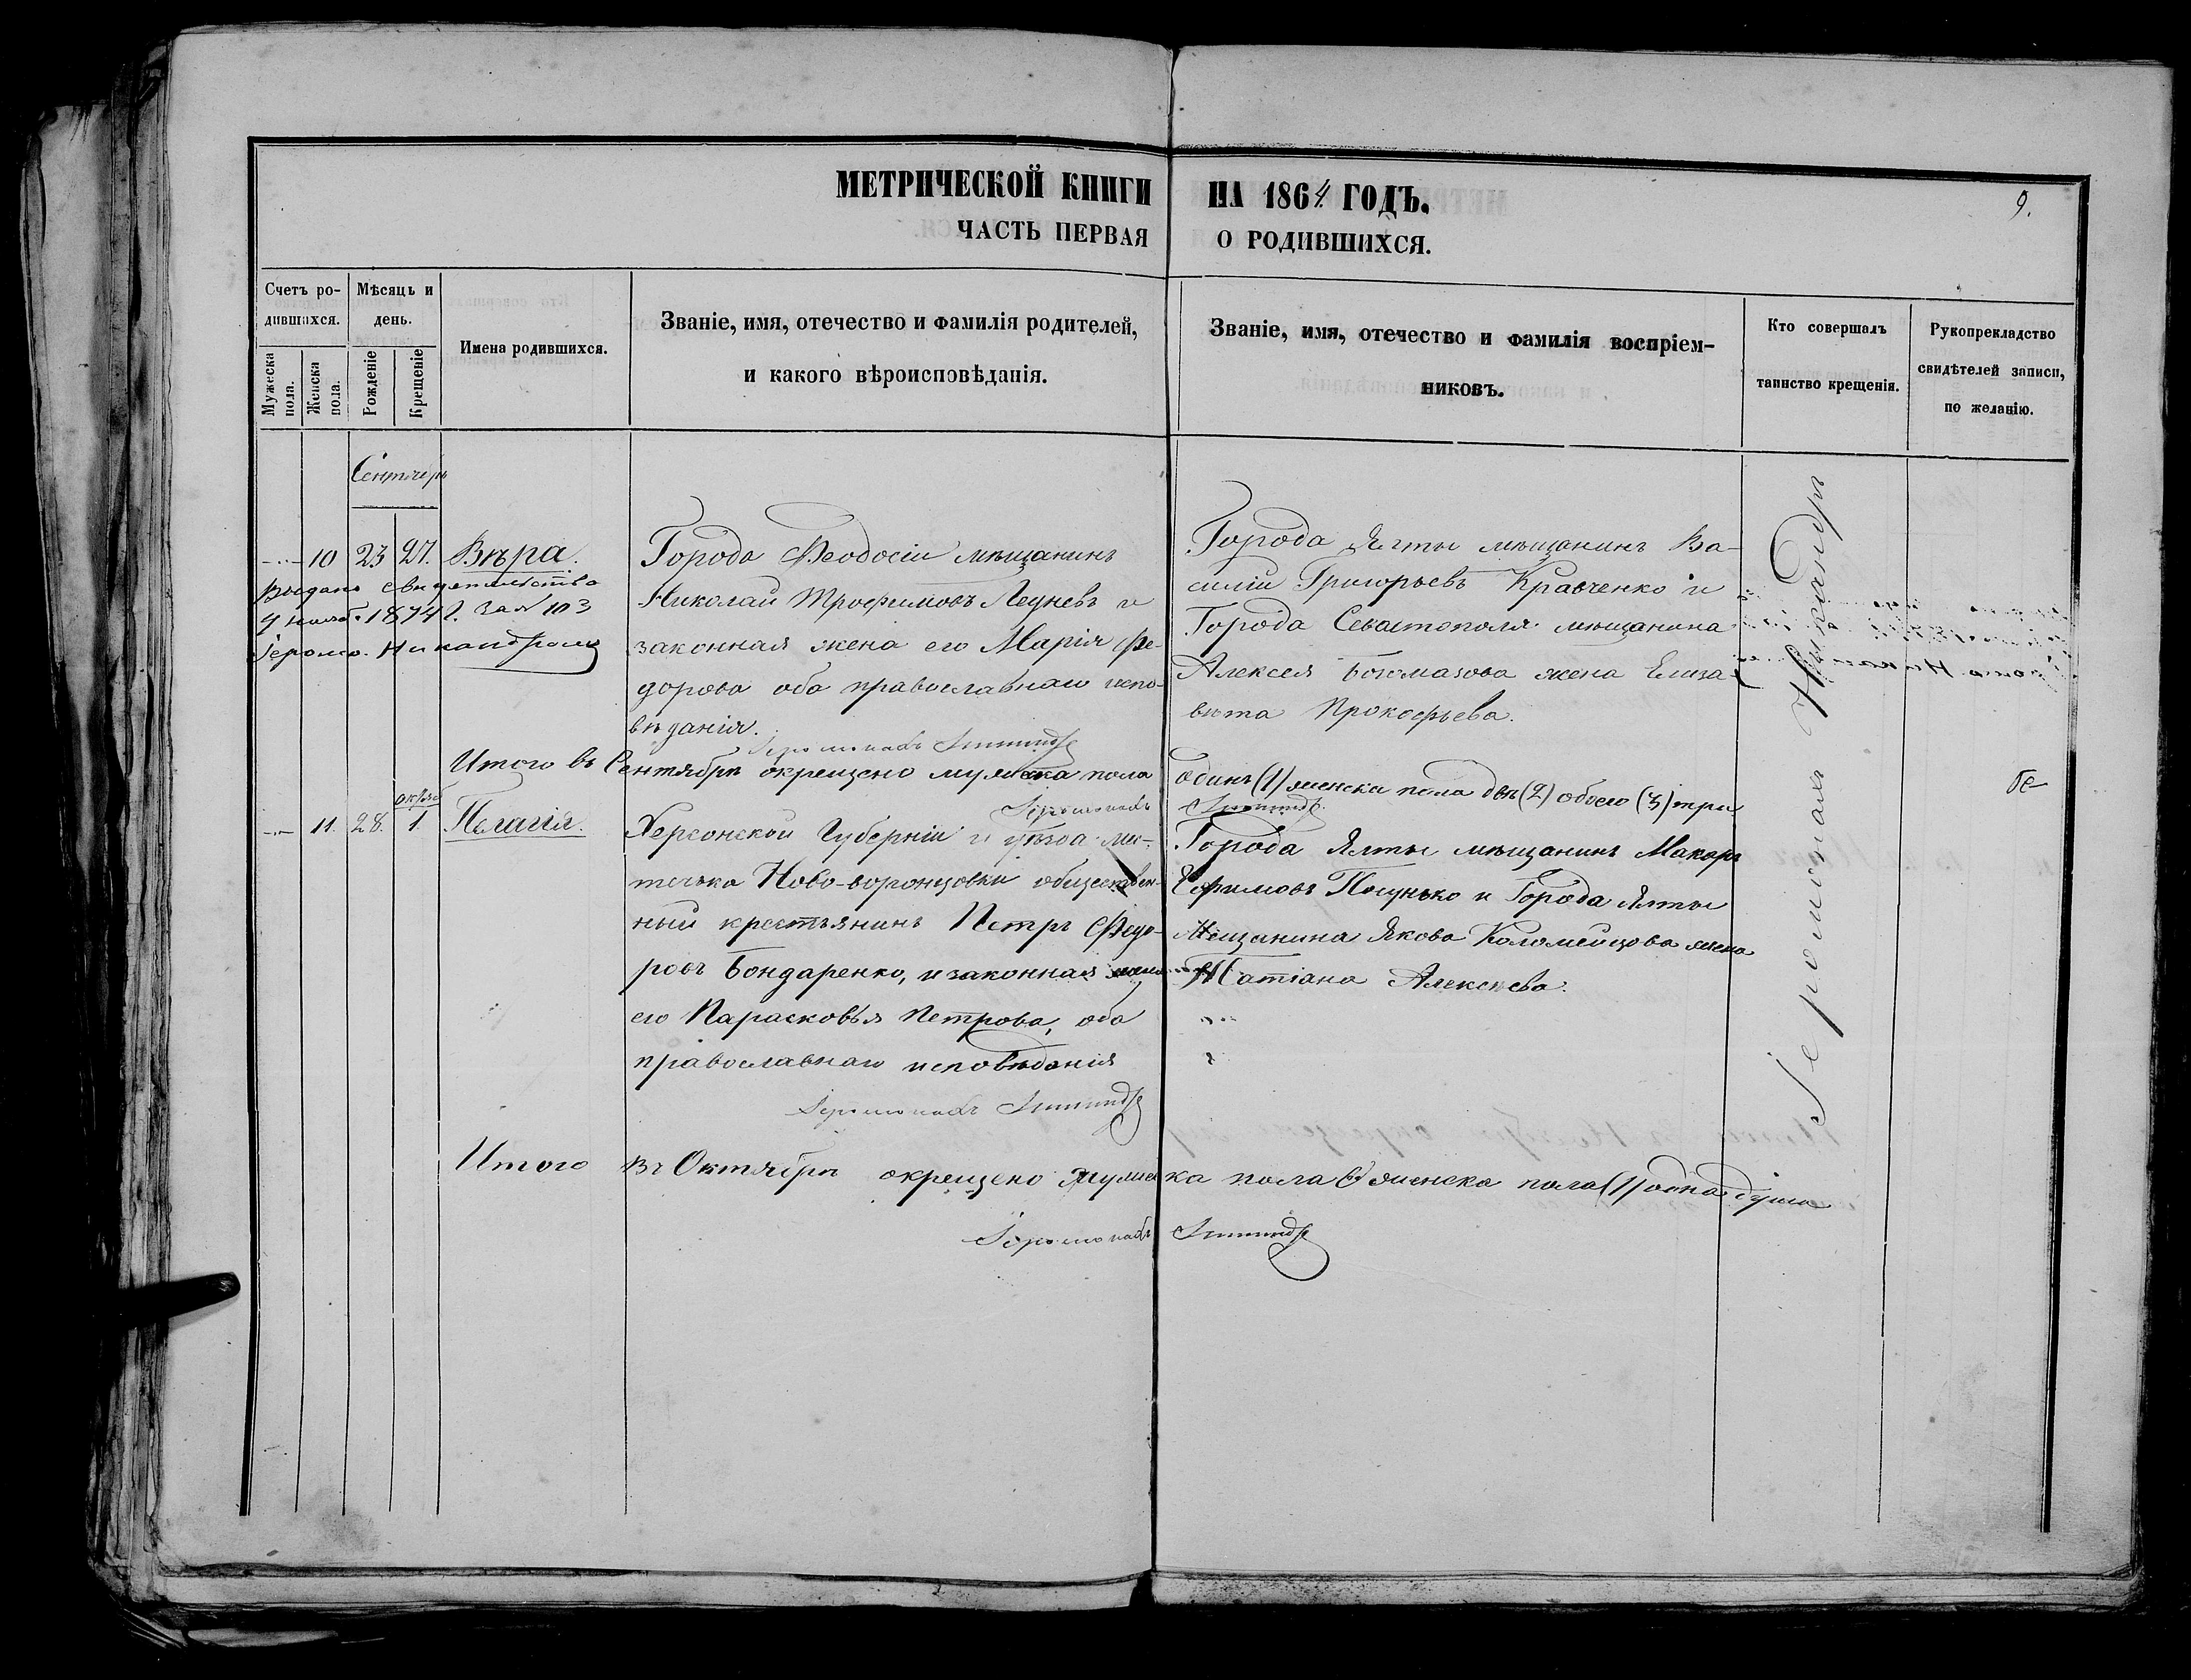 МЕТРИЧЕСКОЙ КНИГИ НА 1864 ГОДЪ.
9.
ЧАСТЬ ПЕРВАЯ О РОДИВШИХСЯ.
Счетъ ро-
дившихся.
Мужеска пола.
Женска пола.
Мѣсяцъ и
день.
Рожденіе
Крещеніе
Имена родившихся.
Званіе, имя, отечество и фамилія родителей,
и какого вѣроисповѣданія.
Званіе, имя, отечество и фамилія воспріем-
никовъ.
Кто совершалъ
таинство крещенія.
Рукоприкладство
свидѣтелей записи,
по желанію.
Сентябрь
10 23 27. Вѣра.
Выдано свидетельство
1874 г. за № 103
Іеромо. Никандромъ
Города Феодосіи мѣщанинъ
Николай Трофимовъ и
законная жена его Марія Фе-
дорова оба православнаго испо-
вѣданія.
Іеромонахъ
Города Ялты мѣщанинъ Ва-
силій Григорьевъ Кравченко и
Города Севастополя мѣщанина
Алексея Богомазова жена Елиза-
вета Прокофьева.
Іеромонахъ Никандръ
Итого въ Сентябрѣ окрещено мужеска пола одинъ (1) женска пола двѣ (2) обоего (3) три
Іеромонахъ
11. 28. 1. Пелагія.
Херсонской Губерніи и уѣзда мѣ-
течка Ново-воронцовки обществен-
ный крестьянинъ Петръ Федо-
ровъ Бондаренко, и законная жена
его Парасковья Петрова, оба
православнаго исповѣданія
Іеромонахъ
Города Ялты мѣщанинъ Макаръ
Ефимовъ и Города Ялты
Мещанина Якова Коломейцова жена
Татіана Алексѣева.
Итого въ Октябрѣ окрещено мужеска пола женска пола (1) одна душа
Іеромонахъ